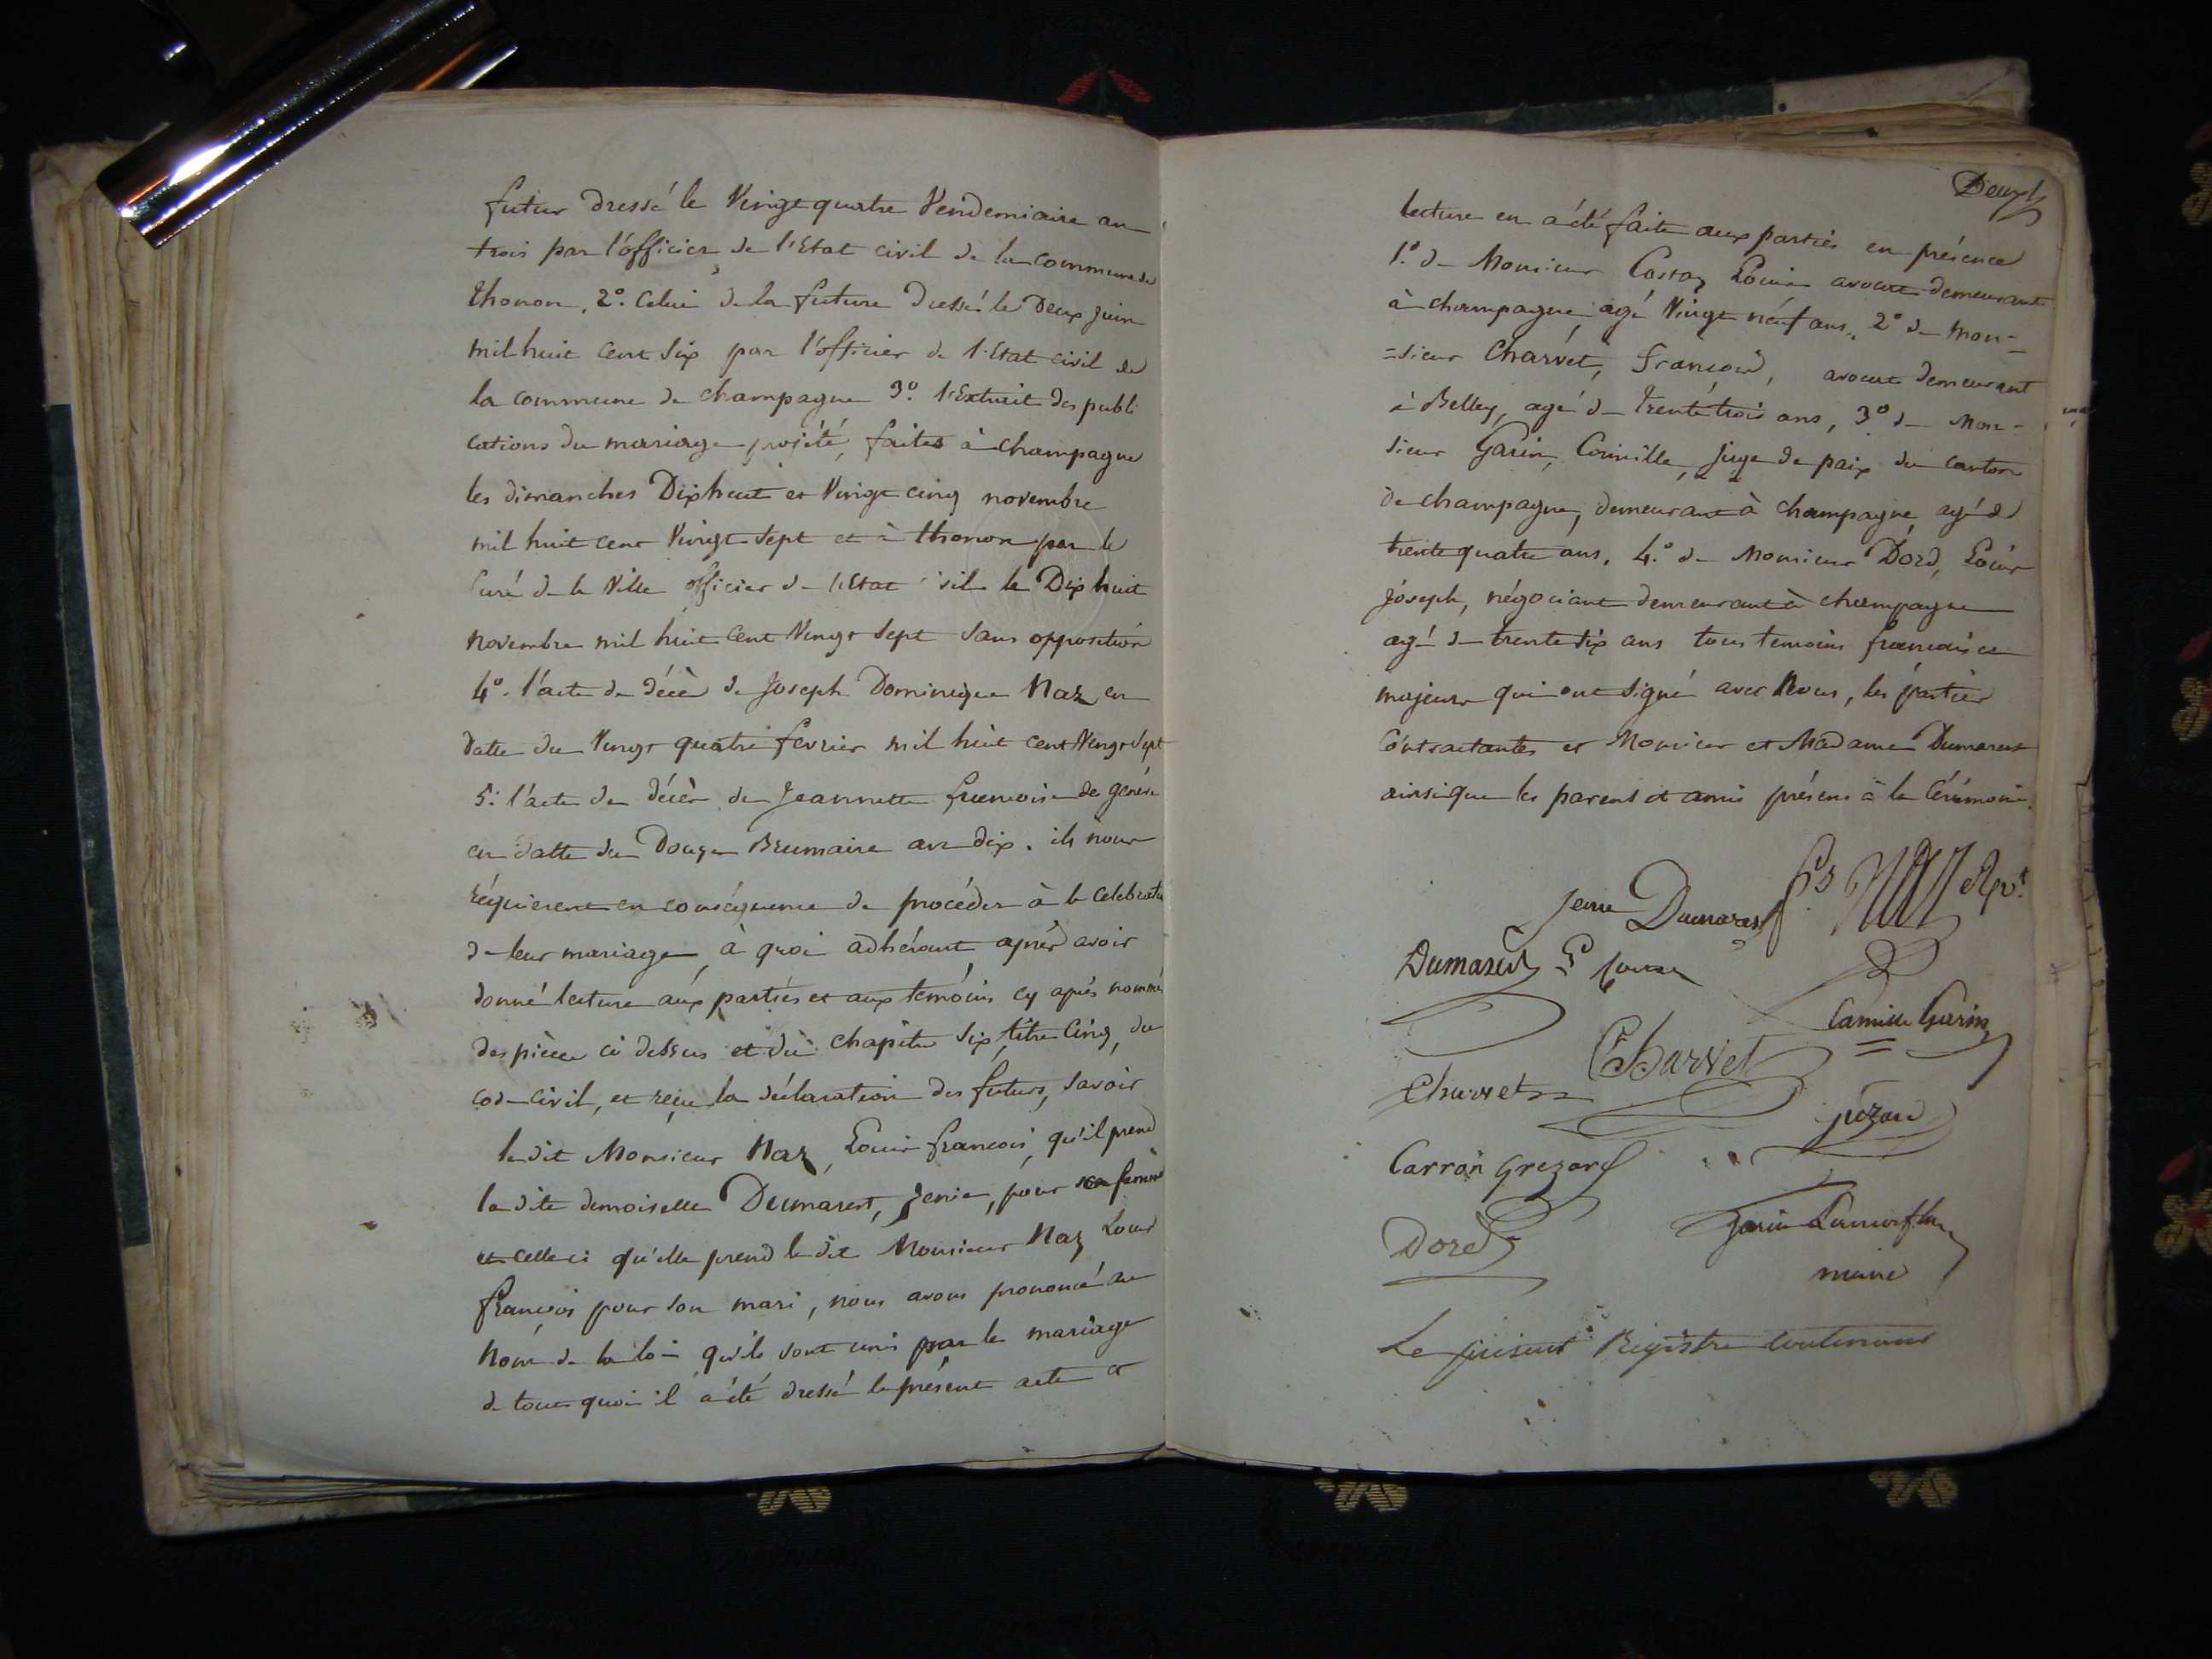 futur dressé le Vingt quatre Vendemiaire an
trois par l'officier de l'Etat civil de la commune de
thonon, 2º. Celui de la future dressé le Deux juin
mil huit cent Six par l'officier de l'Etat civil de
la commune de champagne 3º. l'Extrait des publi
cations du mariage projété, faites à champagne
les dimanches Dix huit et Vingt cinq novembre
mil huit cent Vingt Sept et à thonon par le
Curé de la Ville officier de l'Etat civil le Dix huit
novembre mil huit Cent Vingt Sept Sans opposition
4º. l'acte de décès de Joseph Dominique Naz en
datte du Vingt quatre fevrier mil huit cent Vingt Sept
5º. l'acte de décès de Jeannette francoise de
en datte du Douze Brumaire an dix. ils nous
réquierent en conséquence de procéder à la celebration
de leur mariage, à quoi adhérant après avoir
donné lecture aux parties et aux temoins cy après nommés
des pièces ci dessus et du chapitre Six, titre Cinq, du
code civil, et reçu la déclaration des futurs, Savoir
le dit Monsieur Naz, Louis françois, qu'il prend
la dite demoiselle Dumarest, Jenie, pour sa femme
et celle ci qu'elle prend le dit Monsieur Naz Louis
françois pour son mari, nous avons prononcé au
Nom de la loi qu'ils sont unis par le mariage
de tout quoi il a été dressé le présent acte et
Deux
lecture en a été faite aux parties en présence
1º. de Monsieur Costaz Louis avocat demeurant
à champagne agé Vingt neuf ans, 2º de Mon-
=sieur Charvet, françois, avocat demeurant
à Belley, agé de Trente trois ans, 3º de Mon-
sieur Garin, Camille, juge de paix du canton
de champagne, demeurant à champagne agé de
trente quatre ans, 4.º de Monsieur Dord, Louis
Joseph, négociant demeurant à champagne
agé de trente Six ans tous temoins francais et
majeurs qui ont Signé avec Nous, les parties
Contractantes et Monsieur et Madame Dumarest
ainsi que les parens et amis présens à la Cérémonie.
Jenie Dumarest
Dumarest
Camille Garin
Charvet
Charvet
Carron Grezard
Dord
Garin
maire
Le présent Registre contenant